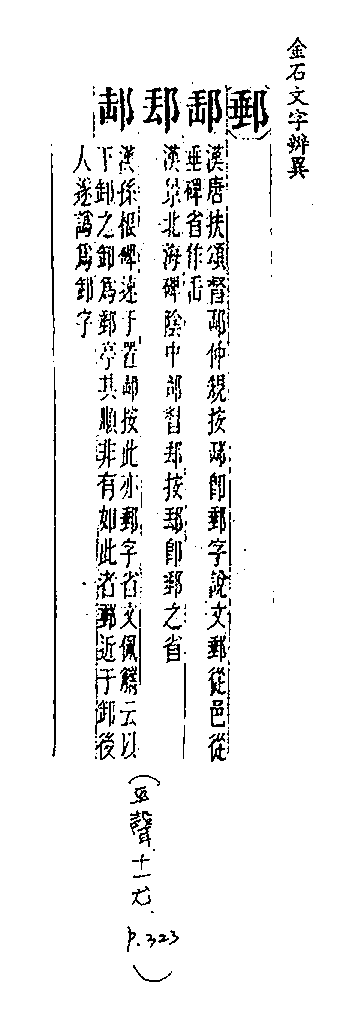 金石文字辨異
郵
漢唐扶頌督仲按即郵字說文郵從邑從
垂碑省作
漢景北海碑陰中部督按即郵之省
漢孫根碑速于置按此亦郵字省文佩觿云以
下卸之卸爲郵亭其順非有如此者郵近于卸後
人遂譌爲卸字
(平聲十一尤
p.323)